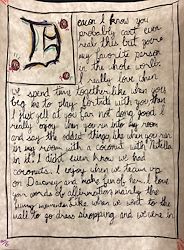 Deacon I know you
probably can't even
read this but you're
my favorite person
in the whole world.
I really love when
we spend time together like when you
beg me to play fortnite with you when
I just yell at you for not doing good. I
really enjoy when you run into my room
and say the oddest things like when you ran
in my room with a coconut with Nutella
in it. I didn't even know we had
coconuts. I enjoy when we team up
on Dauncey and make fun of her. I love
your words of affirmation mainly the
funny moments like when we went to the
mall to go dress shopping and we were in